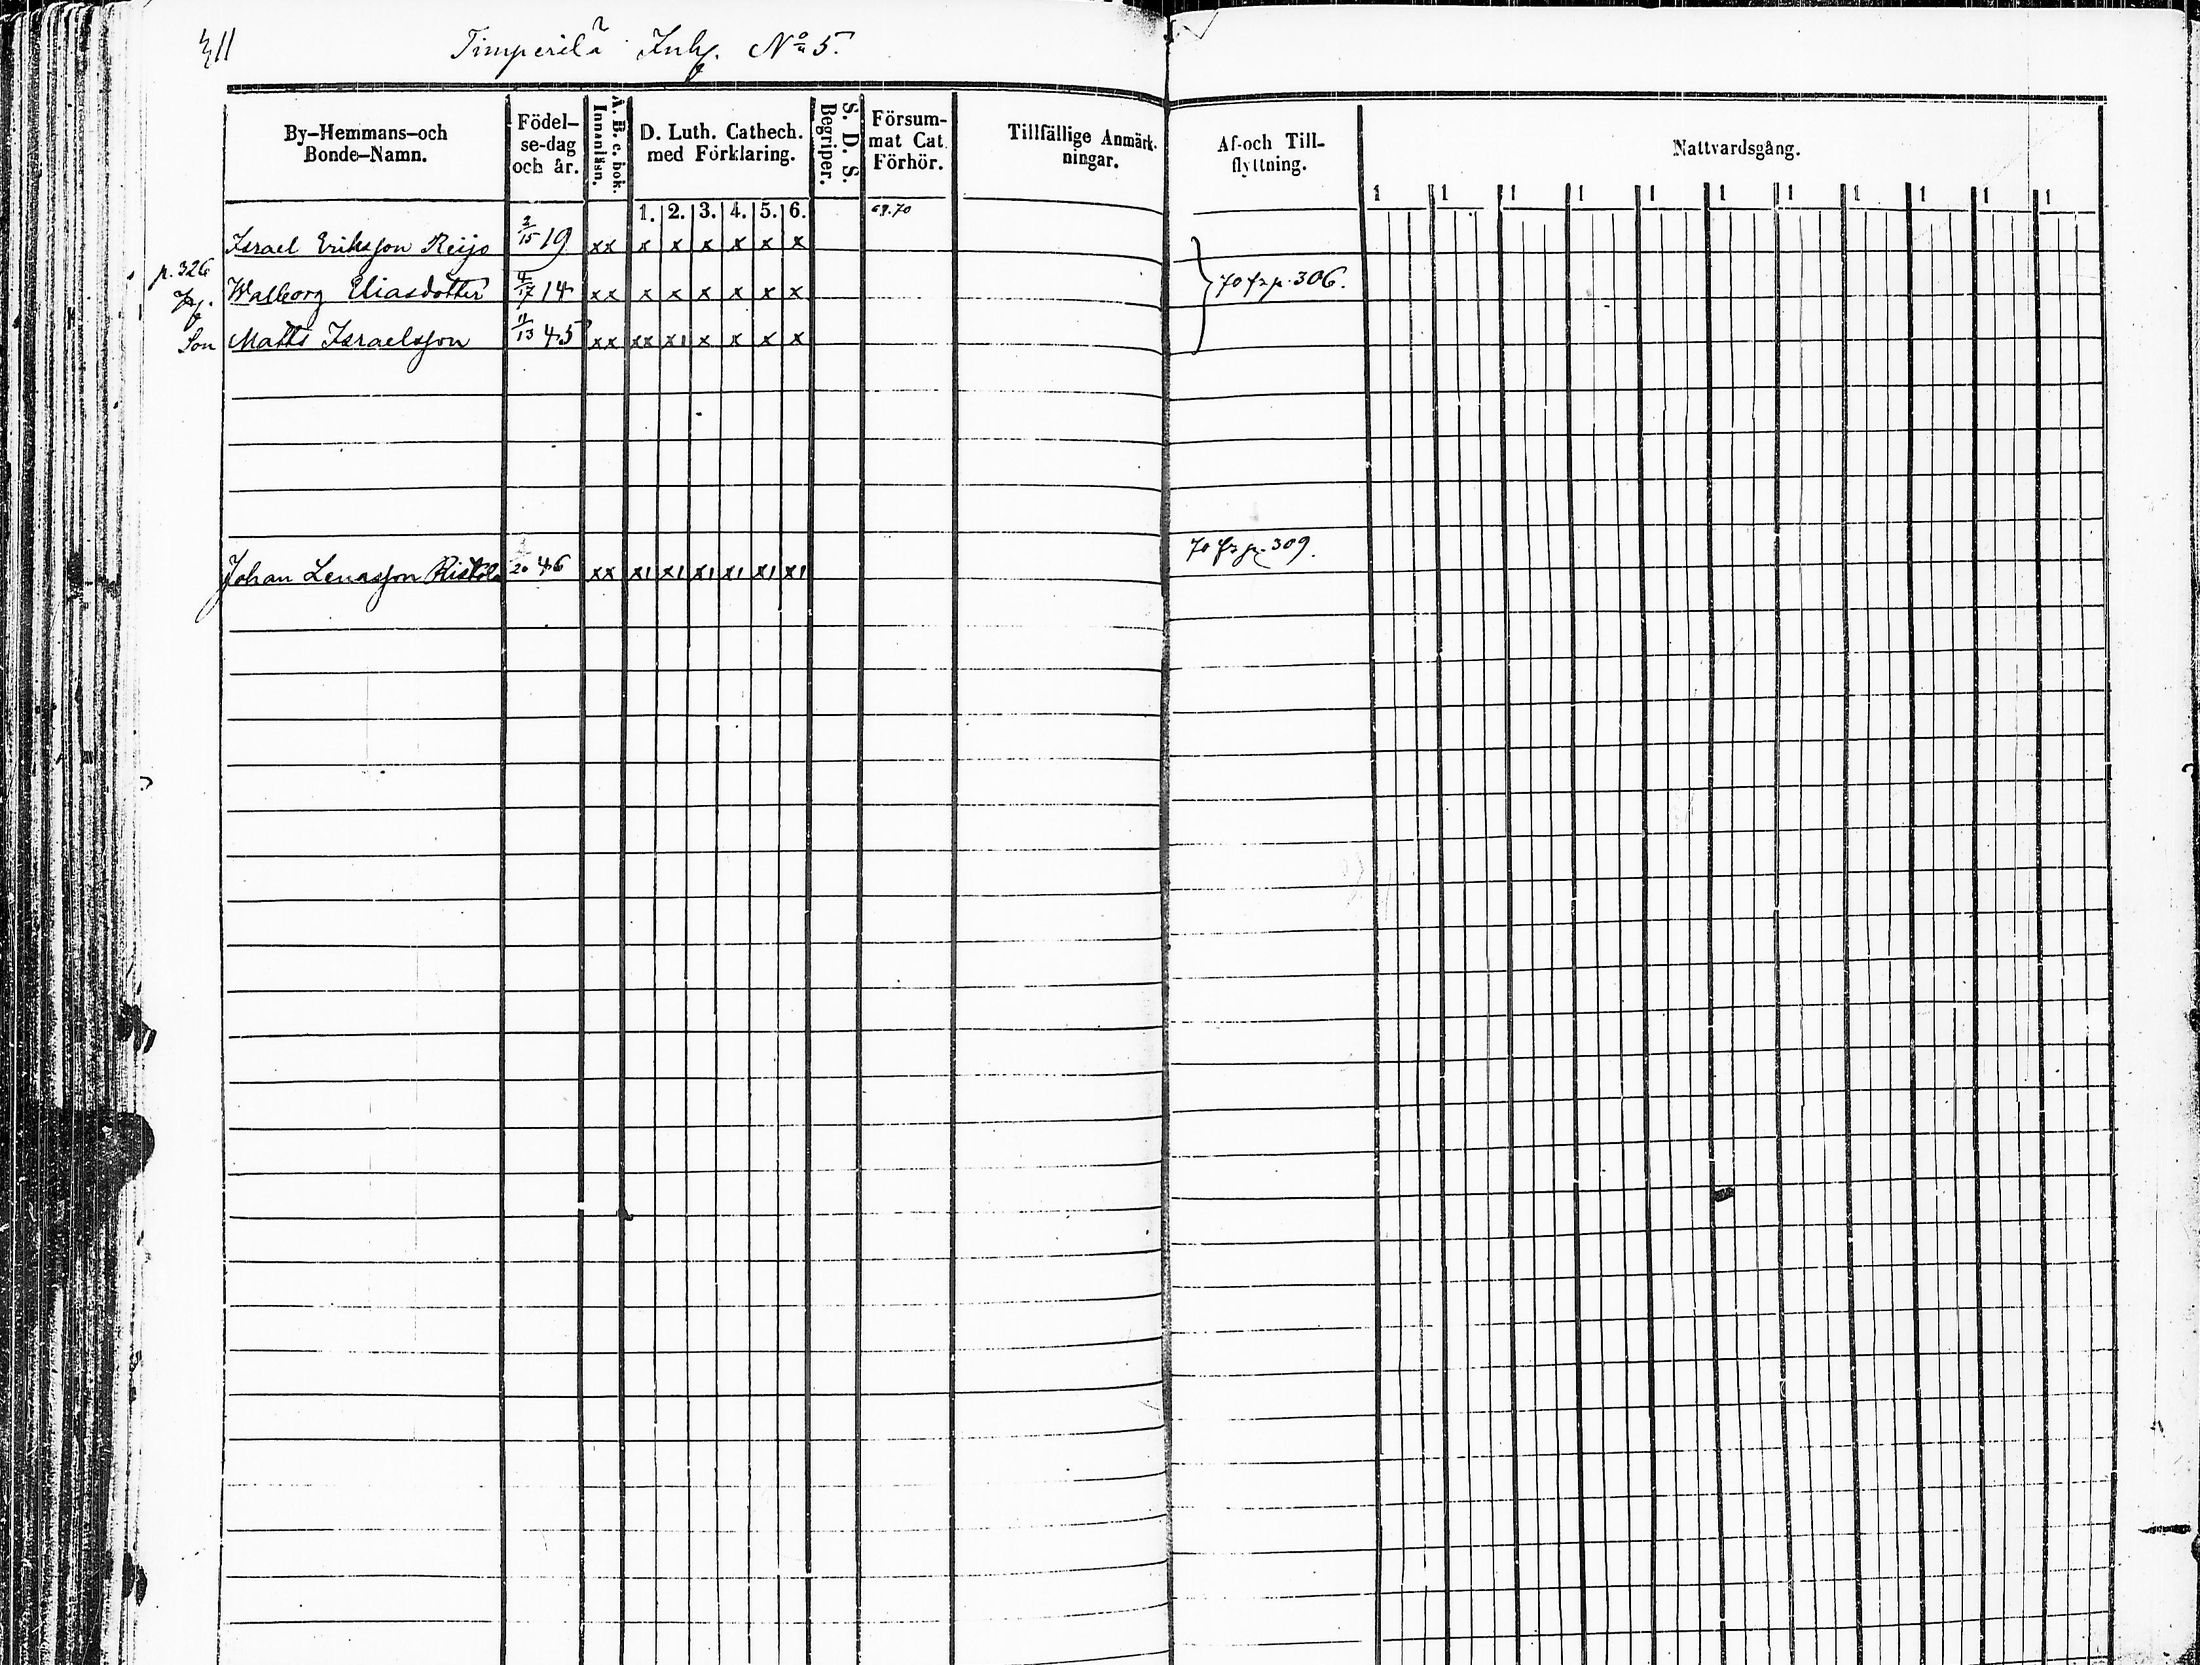 311 Timperilä Inh. No 5.
By-Hemmans-och Bonde-Namn.
Födel-se-dag och år.
A. B. c. bok. Innanläsn.
D. Luth. Cathech. med Förklaring.
S. D. S. Begriper.
Försum-mat Cat. Förhör.
Tillfällige Anmärk-ningar.
Af-och Till-flyttning.
Nattvardsgång.
1. 2. 3. 4. 5. 6. 69.70 1 1 1 1 1 1 1 1 1 1 1
Israel Eriksson Reijo 3/15 19 xx x x x x x x
p. 326 Walborg Eliasdotter 4/17 14 xx x x x x x x 70 fr p. 306.
Son Matts Israelsson 11/13 45 xx xx x1 x x x x
Johan Lenasson 20 46 xx x1 x1 x1 x1 x1 x1 70 fr p. 309.